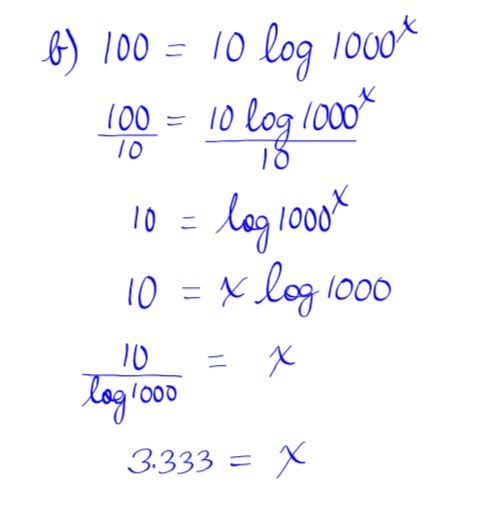 b) 100 = 10 log 1000^x
100/10 = 10 log 1000^x/10
10 = log 1000^x
10 = x log 1000
10/log 1000 = x
3.333 = x